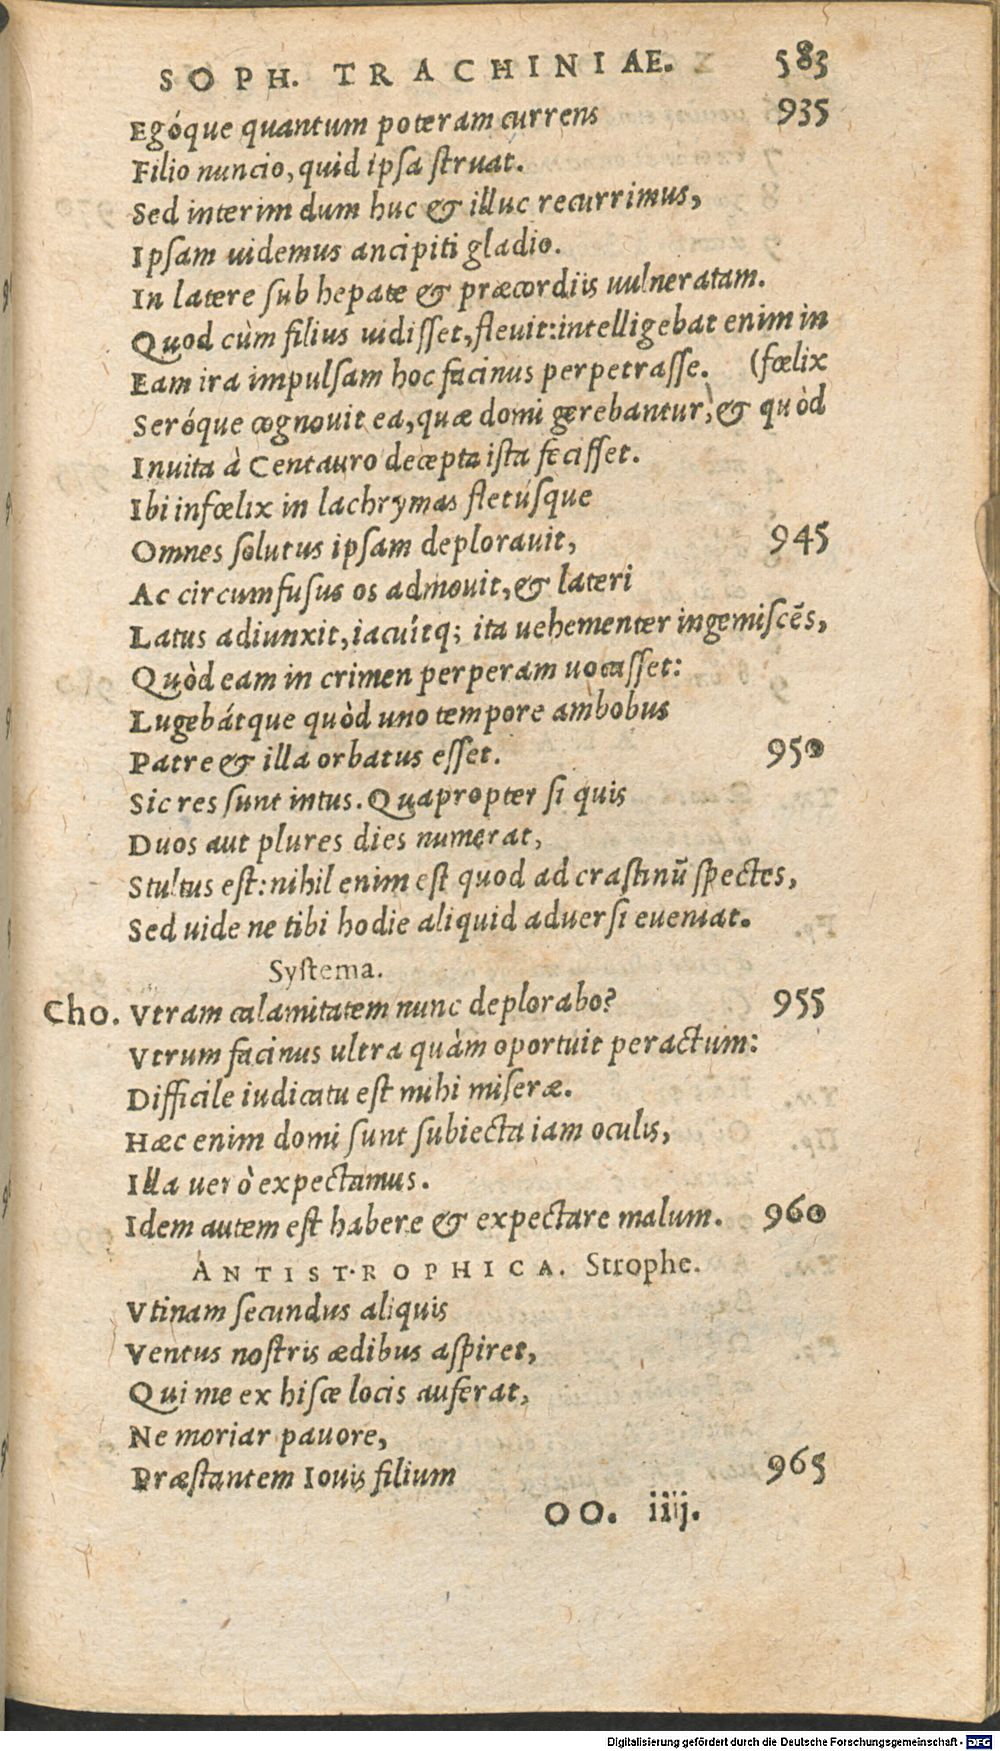 SOPH. TRACHINIAE. 583
Egóque quantum poteram currens 935
Filio nuncio, quid ipsa struat.
Sed interim dum huc & illuc recurrimus,
Ipsam uidemus ancipiti gladio.
In latere sub hepate & præcordiis uulneratam.
Quod cùm filius uidisset, fleuit: intelligebat enim in
Eam ira impulsam hoc facinus perpetrasse. (fœlix
Seróque cognouit ea, quæ domi gerebantur, & quòd
Inuita à Centauro decepta ista fecisset.
Ibi infœlix in lachrymas fletúsque
Omnes solutus ipsam deplorauit, 945
Ac circumfusus os admouit, & lateri
Latus adiunxit, iacuítq; ita uehementer ingemiscẽs,
Quòd eam in crimen perperam uocasset:
Lugebátque quòd uno tempore ambobus
Patre & illa orbatus esset. 950
Sic res sunt intus. Quapropter si quis
Duos aut plures dies numerat,
Stultus est: nihil enim est quod ad crastinũ spectes,
Sed uide ne tibi hodie aliquid aduersi eueniat.
Systema.
Cho. Vtram calamitatem nunc deplorabo? 955
Vtrum facinus ultra quàm oportuit peractum:
Difficile iudicatu est mihi miseræ.
Hæc enim domi sunt subiecta iam oculis,
Illa uerò expectamus.
Idem autem est habere & expectare malum. 960
ANTISTROPHICA. Strophe.
Vtinam secundus aliquis
Ventus nostris ædibus aspiret,
Qui me ex hisce locis auferat,
Ne moriar pauore,
Præstantem Iouis filium 965
OO. iiij.
Digitalisierung gefördert durch die Deutsche Forschungsgemeinschaft - DFG